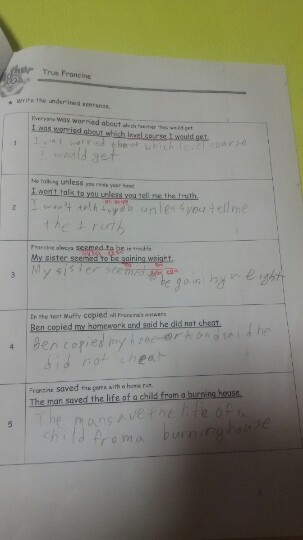 True Francine
★ Write the underlined sentence.
Everyone was worried about which teacher they would get.
I was worried about which level course I would get.
1
I was worried about which level course
I would get
No talking unless you raise your hand.
I won't talk to you unless you tell me the truth.
2
I won't talk to you unless you tell me
the truth
Francine always seemed to be in trouble.
My sister seemed to be gaining weight.
3
My sister seemed to
be gaining weight
In the test Muffy copied all Francine's answers.
Ben copied my homework and said he did not cheat.
4
Ben copied my homework and said he
did not cheat
Francine saved the game with a home run.
The man saved the life of a child from a burning house.
5
The man save the life of a
child from a burning house